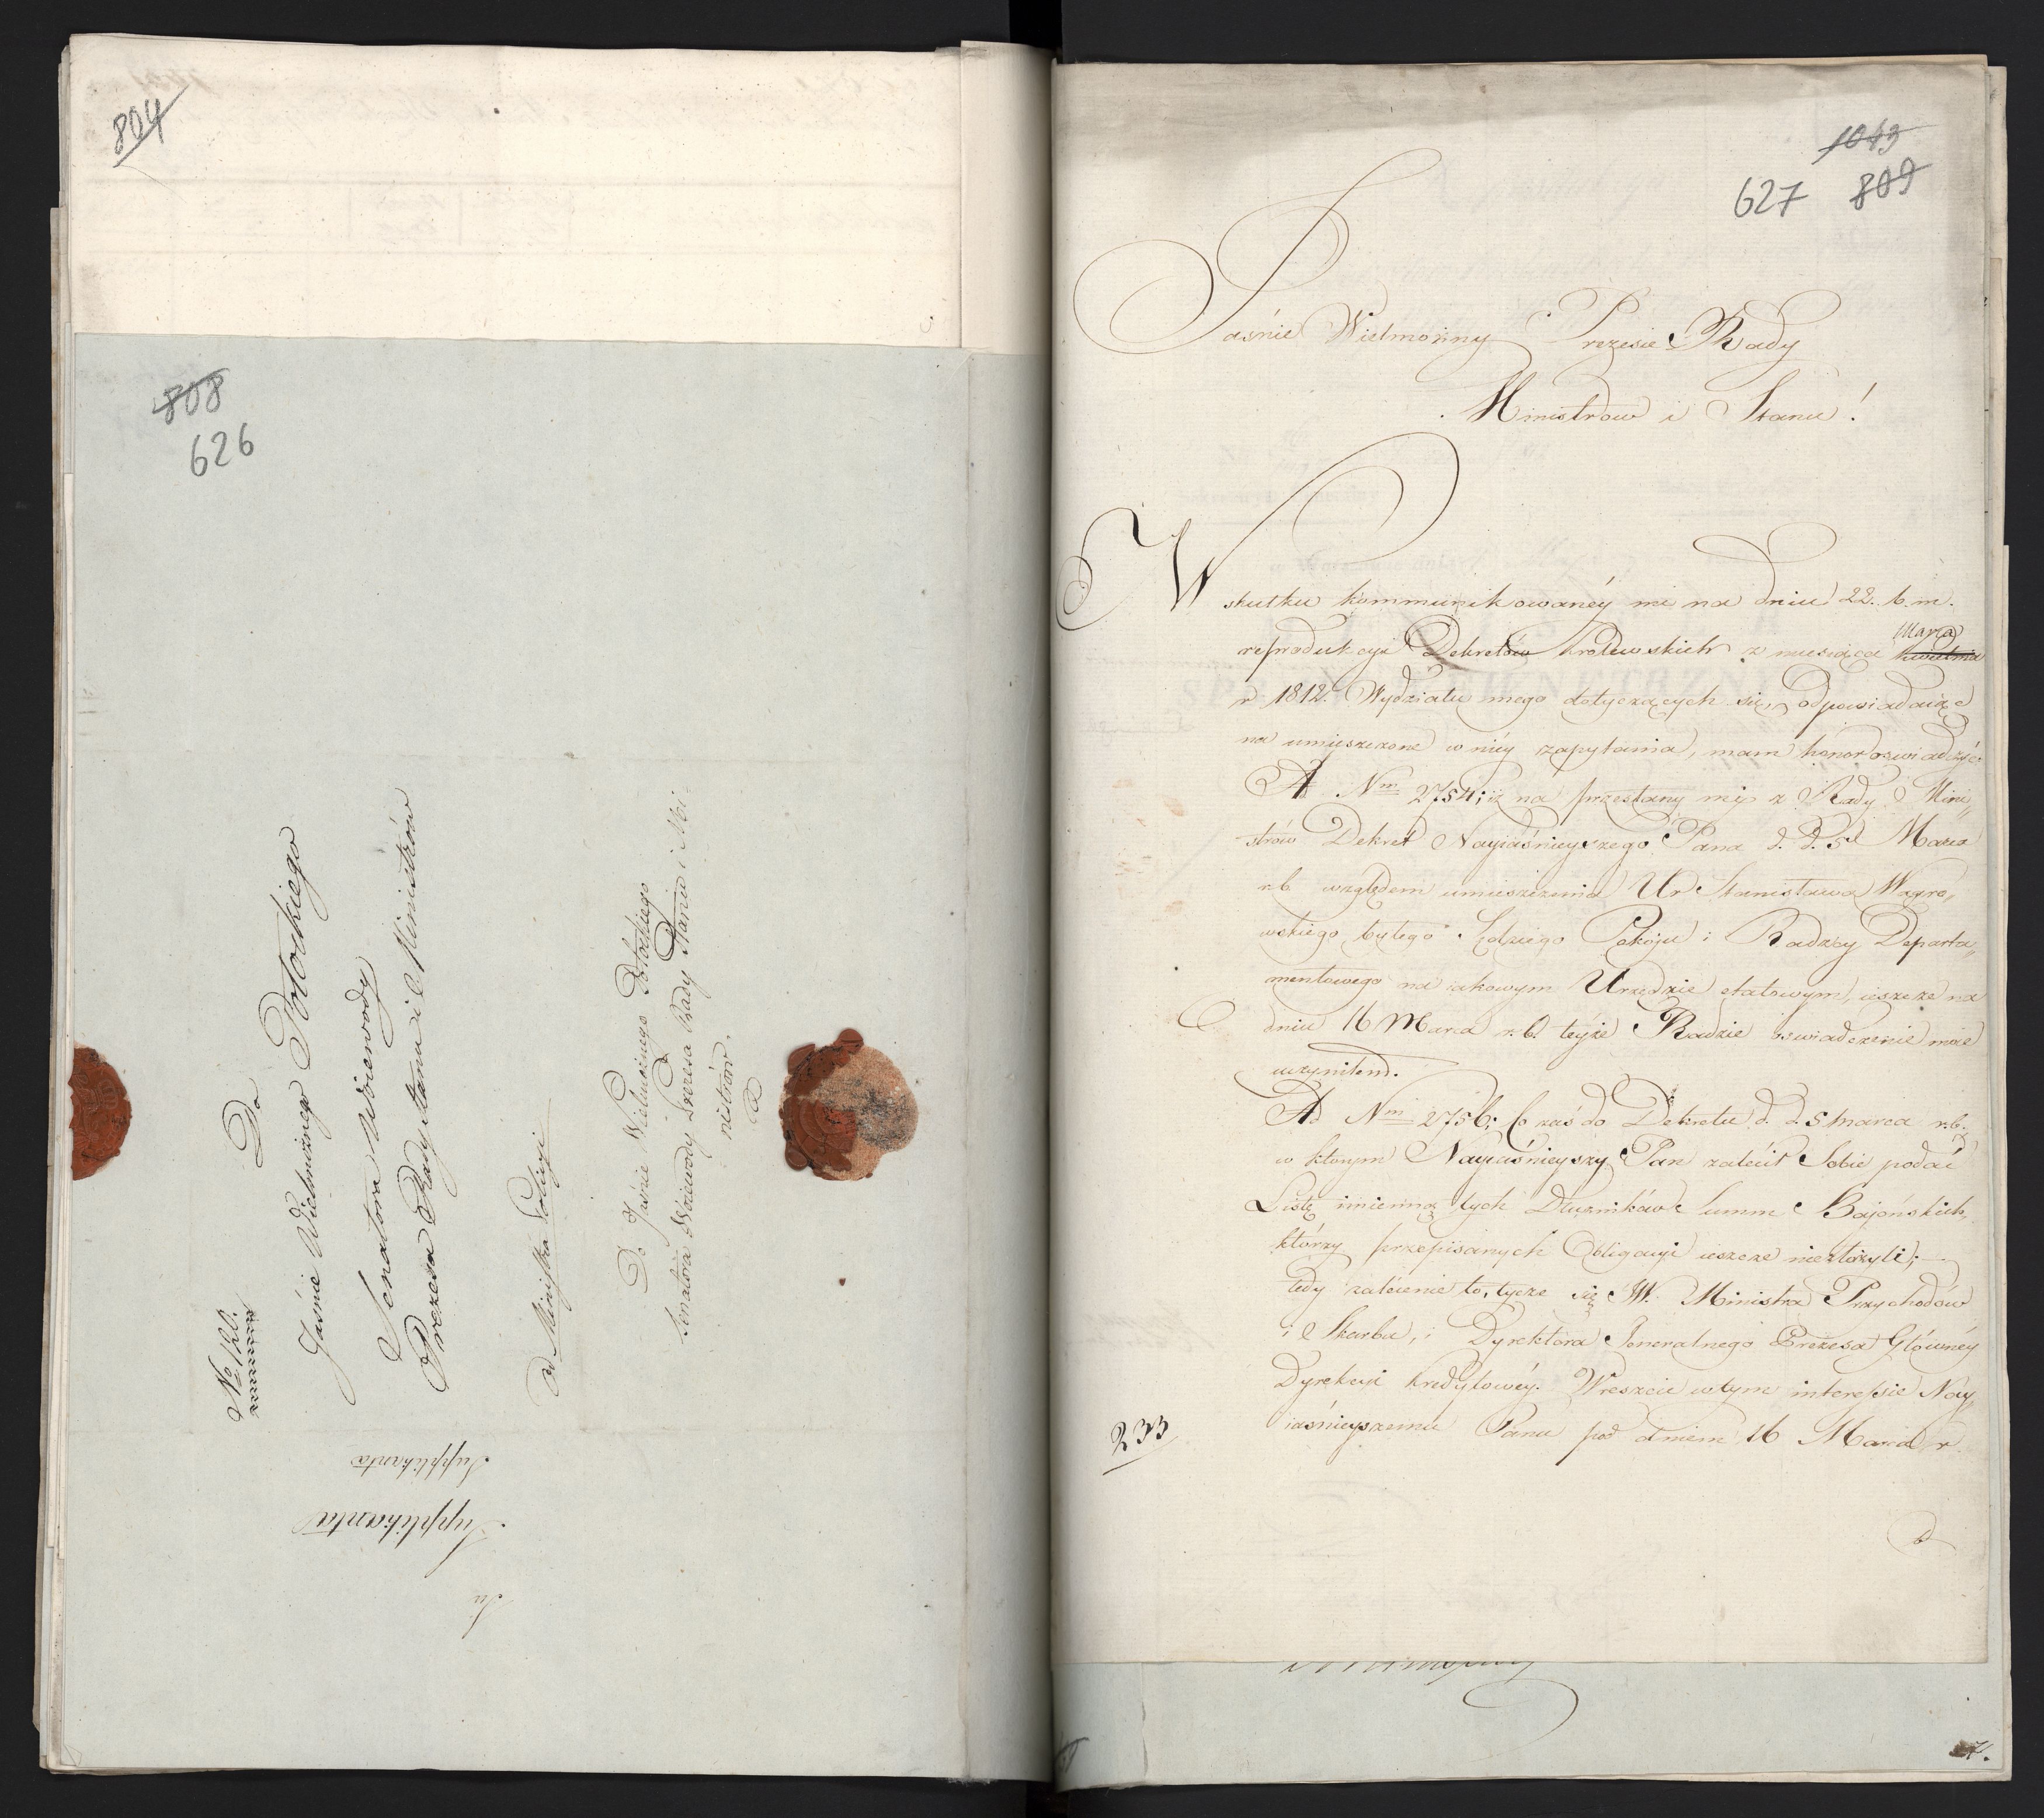 804
808
626
Do
No 1820.
Jaśnie Wielmożnego Potockiego
Senatora Woiewody
Prezesa Rady Stanu i Ministrów
od Ministra Policyi
Do Jaśnie Wielmożnego Potockiego
Senatora Woiewody Prezesa Rady Stanu i Mi-
nistrów.
Supplikanta
Supplikanta
Su
1043
627 809
Jaśnie Wielmożny Prezesie Rady
Ministrów i Stanu!
W skutku kommunikowanéy mi na dniu 22. b. m.
reprodukcyi Dekretów Królewskich z miesiąca kwietnia
Marca
r 1812. Wydziału mego dotyczących się, odpowiadaiąc
na umieszczone w niéy zapytania, mam honor oświadczyć:
Ad Nm 2754; iż na przesłany mi z Rady Mini„
strów Dekret Nayiaśnieyszego Pana d. d. 5 Marca
r. b. względem umieszczenia Ur Stanisława Wągro„
wskiego byłego Sędziego Pokoju i Radzcy Departa„
mentowego na iakowym Urzędzie etatowym, ieszcze na
dniu 16 Marca r. b. teyże Radzie oświadczenie moie
uczyniłem.
Ad Nm 2756; Co zaś do Dekretu d. d. 5 Marca r. b.
w którym Nayiaśnieyszy Pan zalécił Sobie podać
Listę imienną tych Dłużników Summ Bajońskich,
którzy przepisanych Obligacyi ieszcze niezłożyli;
tedy zalécenie to, tycze się JW. Ministra Przychodów
i Skarbu, i Dyrektora Jeneralnego Prezesa Głównéy
Dyrekcyi kredytowéy. Wreszcie w tym interessie Nay„
iaśnieyszemu Panu pod dniem 16 Marca r.
233
b